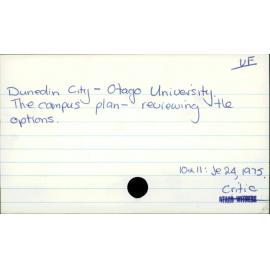 UF
Dunedin City - Otago University.
The campus plan - reviewing the
options.
10&11: Je 24, 1975.
Critic